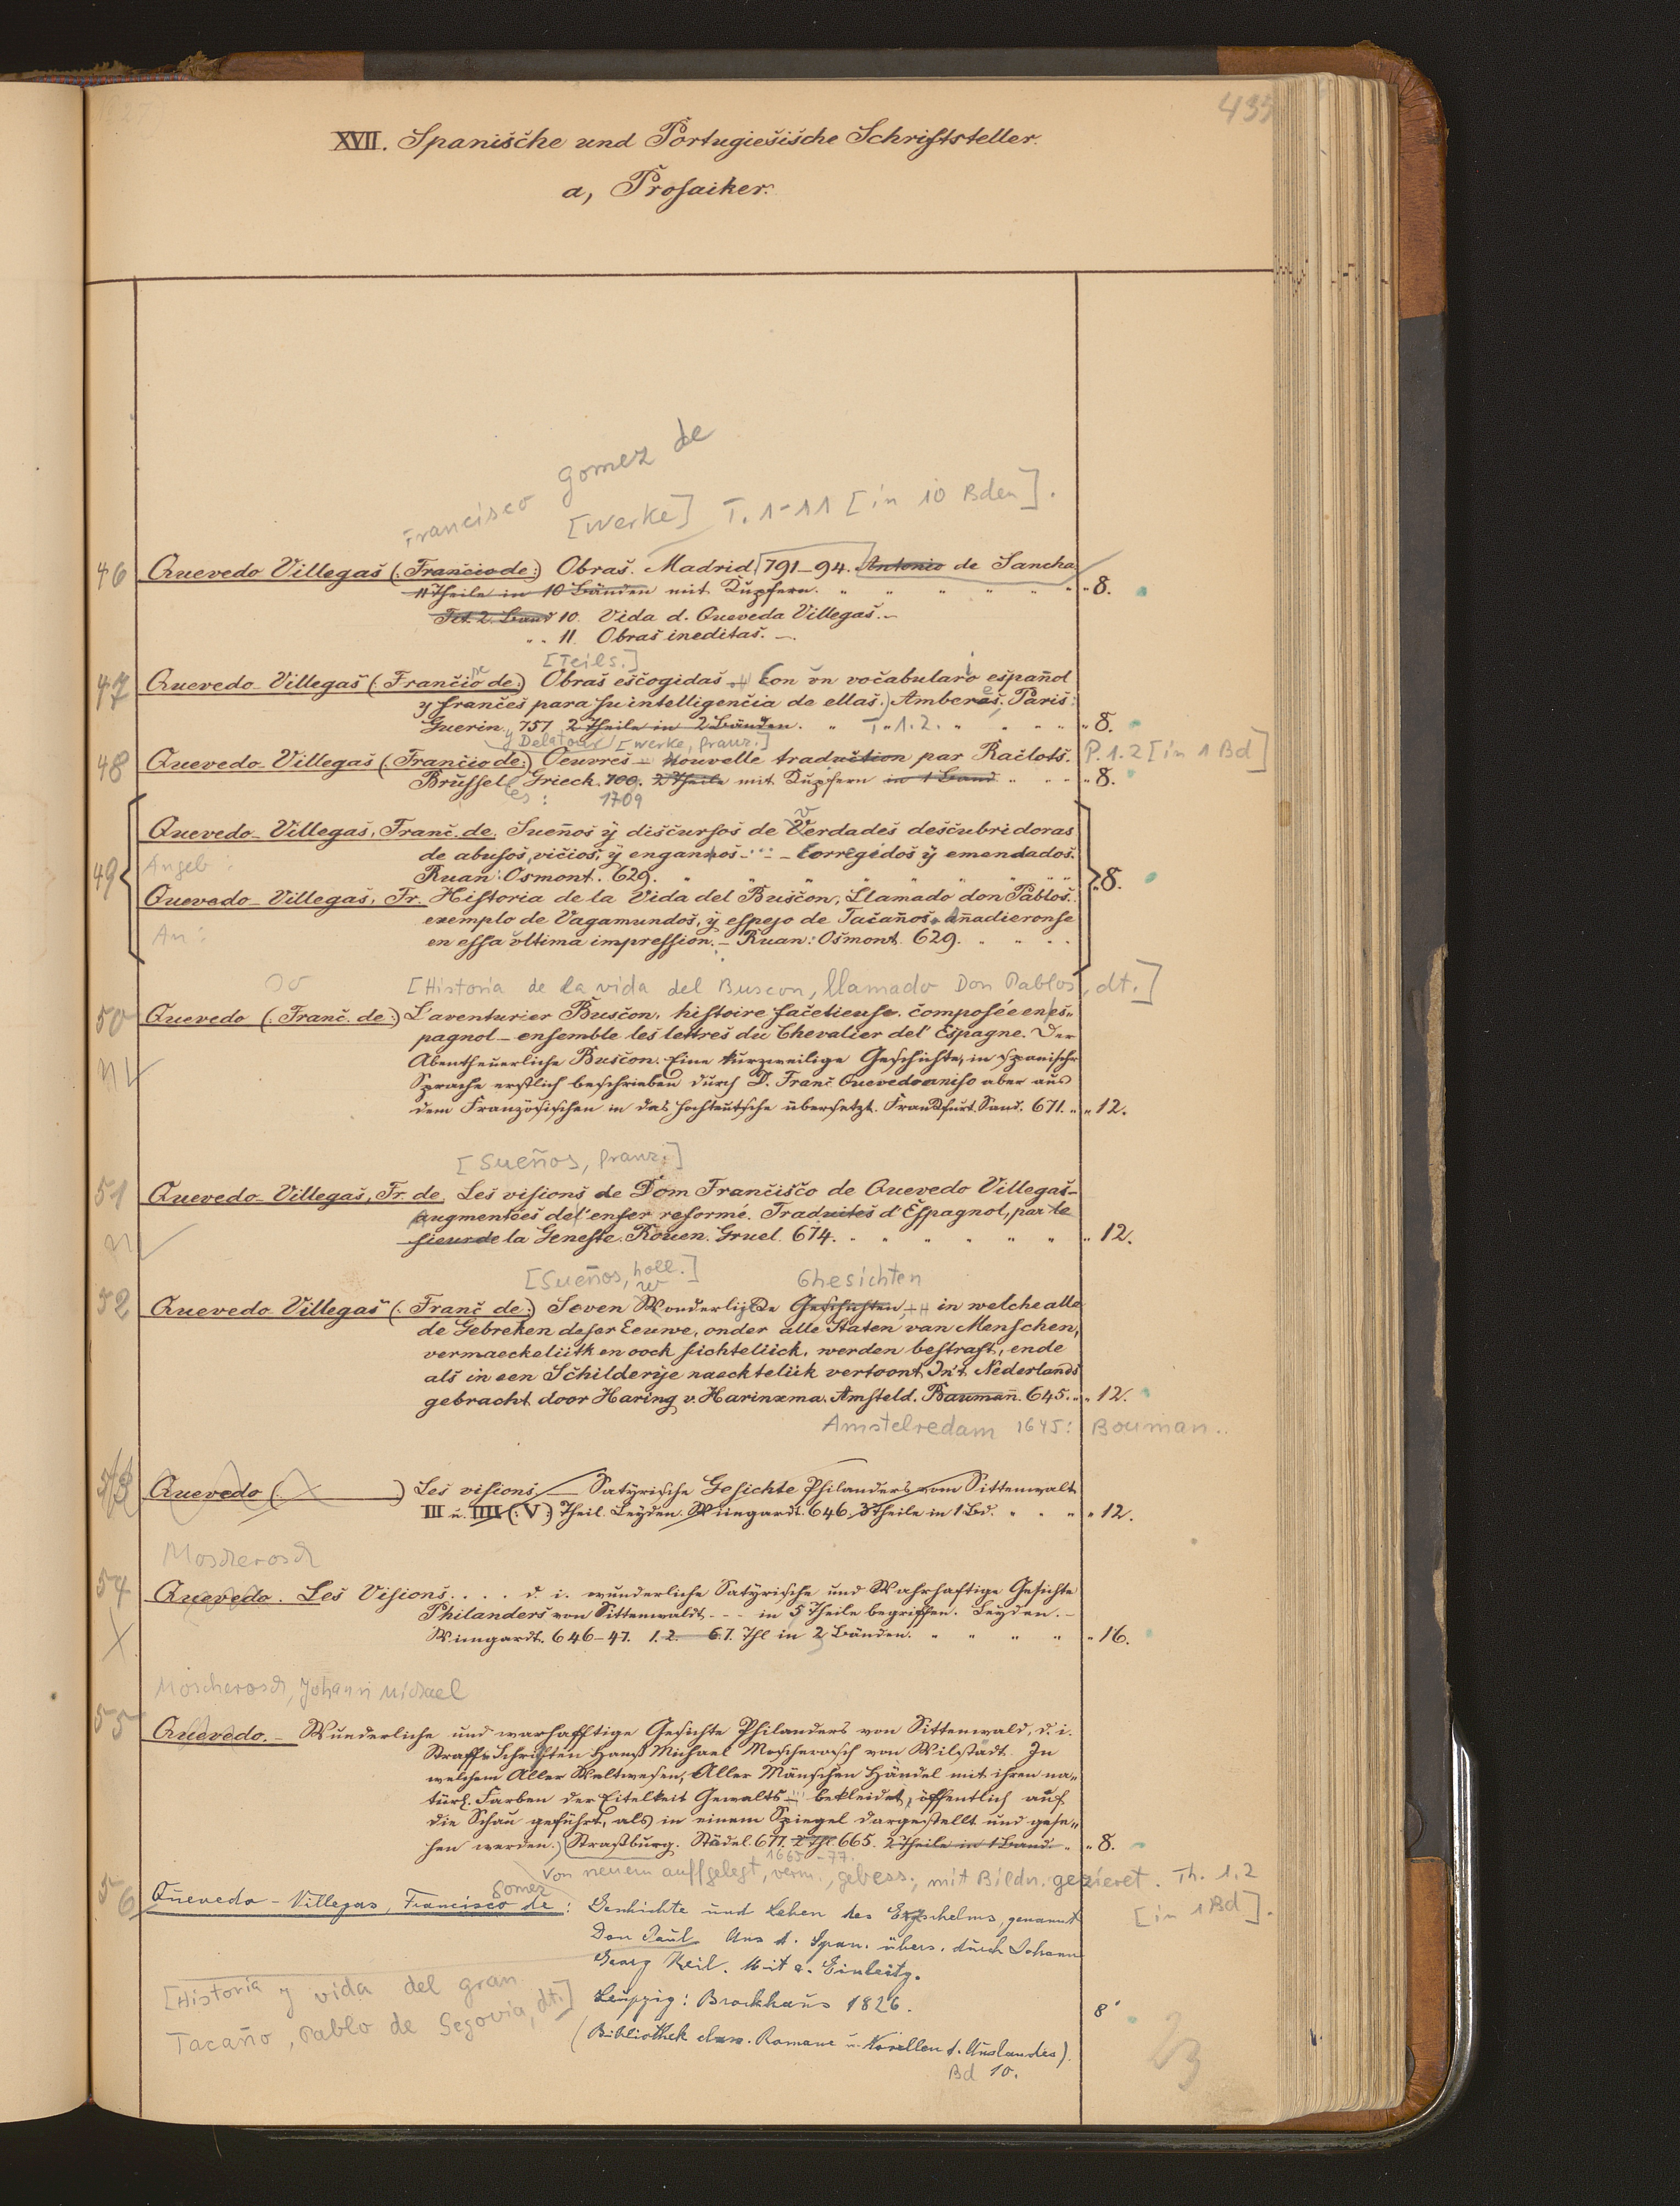 435
XVII. Spanische und Portugiesische Schriftsteller.
a, Prosaiker.
Francisco Gomez de
[Werke] T. 1-11 [in 10 Bden].
46 Quevedo Villegas (: Francio de :) Obras. Madrid 791-94. Antonio de Sancha
11 Theile in 10 Bänden mit Kupfern. " " " " " " " 8.
Tit. 2. Band 10. Vida d. Queveda Villegas. -
" " 11. Obras ineditas. -.
[Teils.]
47 Quevedo-Villegas (: Francio de :) Obras escogidas Con un vocabulario español
y frances para su intelligencia de ellas.) Amberes. Paris:
Guerin. 757. 2 Theile in 2 Bänden. " T. 1. 2. " " " " " 8.
y Delatour [Werke, franz.]
48 Quevedo-Villegas (: Francio de :) Oeuvres - Nouvelle traduction par Raclots. P. 1.2 [in 1 Bd]
Brüssel Grieck. 700. 2 Theile mit Kupfern in 1 Band " " " " 8.
les : 1709
49 Quevedo-Villegas, Franc. de. Sueños ÿ discursos de Verdades descubridoras
de abusos, vicios, ÿ engannos - ... - Corregidos ÿ emendados.
Angeb :
Ruan: Osmont. 629. " " " " " " " " 8.
Quevedo-Villegas, Fr. Historia de la Vida del Buscon, Llamado don Pablos.
exemplo de Vagamundos, ÿ espejo de Tacaños. Añadieronse
An :
en essa ultima impression. - Ruan: Osmont. 629. " " " "
[Historia de la vida del Buscon, llamado Don Pablos, dt.]
50 Quevedo (: Franc. de :) L'aventurier Buscon, histoire facetieuse. composée en es-
pagnol - ensemble les lettres du Chevalier del' Espagne. Der
Abentheuerliche Buscon. Eine kurzweilige Geschichte, in spanischr
Sprache erstlich beschrieben durch D. Franc. Quevedo aniso aber aus
dem Französischen in das hochteutsche übersetzt. Franckfurt. Sand. 671. " " 12.
[Sueños, franz.]
51 Quevedo-Villegas, Fr. de. Les visions de Dom Francisco de Quevedo Villegas-
augmentées del'enfer reformé. Traduites d'Espagnol, par le
sieur de la Geneste. Rouen. Gruel. 674. " " " " " " " 12.
[Sueños, holl.] Ghesichten
52 Quevedo Villegas (: Franc de :) Seven Wonderlijcke Gesichten, in welche alle
de Gebreken deser Eeuwe, onder alle Staten van Menschen,
vermaeckeliitk en oock sichteliick, werden bestraft, ende
als in een Schilderije naeckteliik vertoont. In't Nederlands
gebracht door Haring v. Harinxma. Amsteld. Baumañ. 645. " " 12.
Amstelredam 1645: Bouman..
53 Quevedo (: ) Les visions - Satÿrische Gesichte Philanders vom Sittenwalt
III u. IIII (: V :) Theil. Leÿden. Wüngardt. 646. 3 Theile in 1 Bd. " " " " 12.
Moscherosch
54 Quevedo. Les Visions. . . . d. i. wunderliche Satÿrische und Wahrhaftige Gesichte
Philanders von Sittenwaldt - - - in 5 Theile begriffen. Leÿden. -
X Wüngardt. 646-47. 1. 2. 6. 7. Thl in 2 Bänden. " " " " " 16.
Moscherosch, Johann Michael
55 Quevedo. - Wunderliche und warhafftige Gesichte Philanders von Sittenwald, d. i.
Straff-Schriften Hanß Michael Moscherosch von Wilstädt. In
welchem Aller Weltwesen, Aller Mänschen Händel mit ihren na-
türl. Farben der Eitelkeit Gewalts - bekleidet, öffentlich auf
die Schau geführt, als in einem Spiegel dargestellt und gese-
hen werden.) Straßburg. Städel. 677. 2 Thl 665. 2 Theile in 1 Band. " " 8.
1665-77.
Von neuem auffgelegt, verm., gebess., mit Bildn. gezieret. Th. 1.2
[in 1 Bd].
Gomez
56 Quevedo-Villegas, Francisco de : Geschichte und Leben des Erzschelms, genannt
Don Paul Aus d. Span. übers. durch Johann
Georg Keil. Mit e. Einleitg.
[Historia y vida del gran
Tacaño, Pablo de Segovia, dt.]
Leipzig: Brockhaus 1826. 8°
(Bibliothek class. Romane u. Novellen d. Auslandes).
Bd 10.